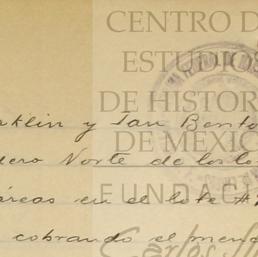 CENTRO D
ESTUDIO
DE HISTOR
DE MÉXIC
FUNDACI
klin y San Bento
dero Norte de los lo
áreas en el lote #
cobrando el men
Carlos